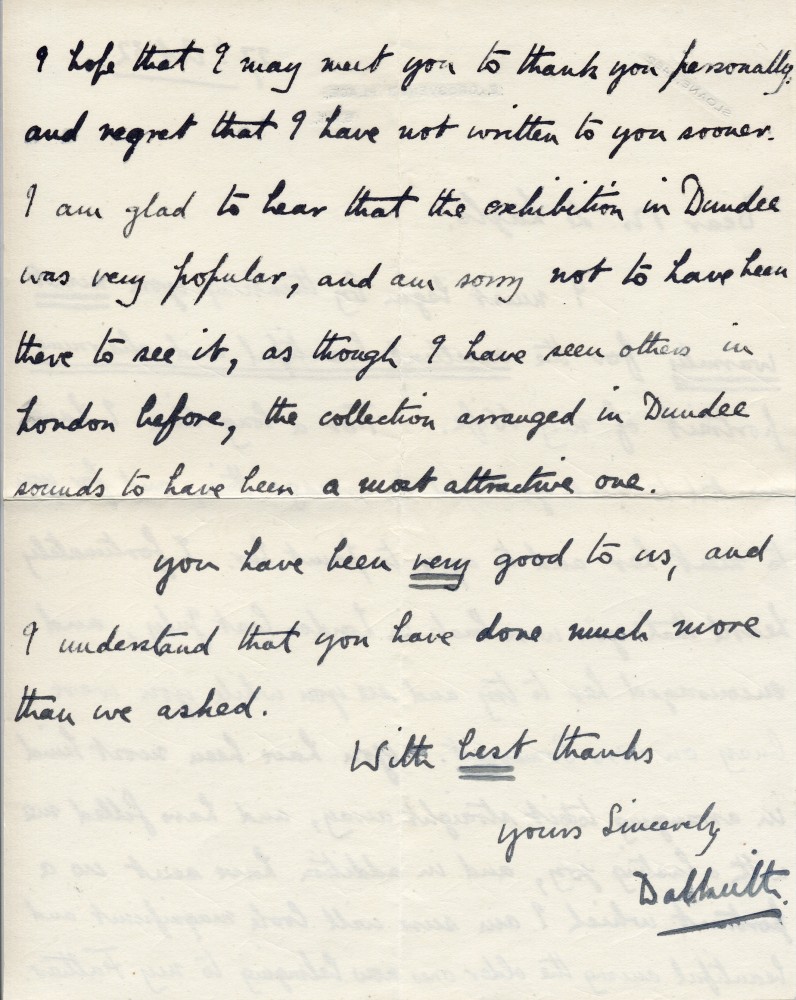 I hope that I may meet you to thank you personally,
and regret that I have not written to you sooner.
I am glad to hear that the exhibition in Dundee
was very popular, and am sorry not to have been
there to see it, as though I have seen others in
London before, the collection arranged in Dundee
sounds to have been a most attractive one.
you have been very good to us, and
I understand that you have done much more
than we asked.
With best thanks
yours Sincerely
Dalkeith.